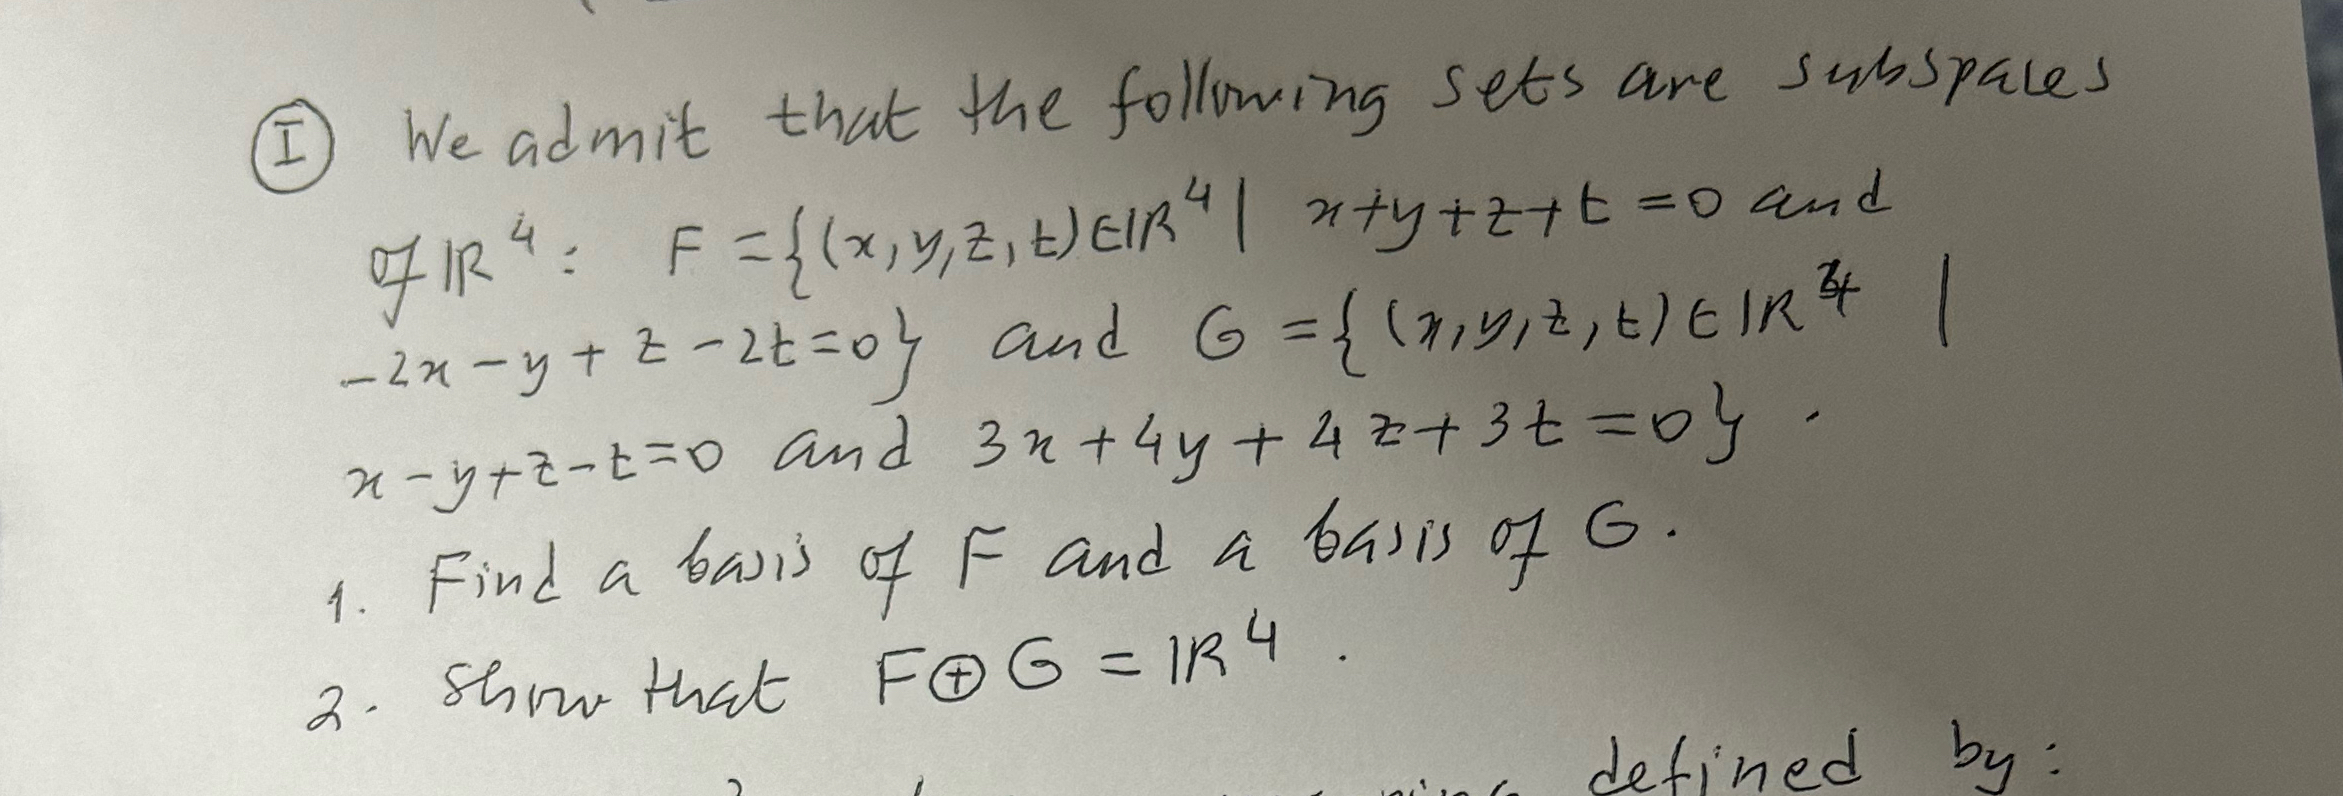 I We admit that the following sets are subspaces
of ℝ⁴: F = {(x, y, z, t) ∈ ℝ⁴ | x+y+z+t = 0 and
-2x - y + z - 2t = 0} and G = {(x, y, z, t) ∈ ℝ⁴ |
x - y + z - t = 0 and 3x + 4y + 4z + 3t = 0}.
1. Find a basis of F and a basis of G.
2. Show that F ⊕ G = ℝ⁴.
defined by: